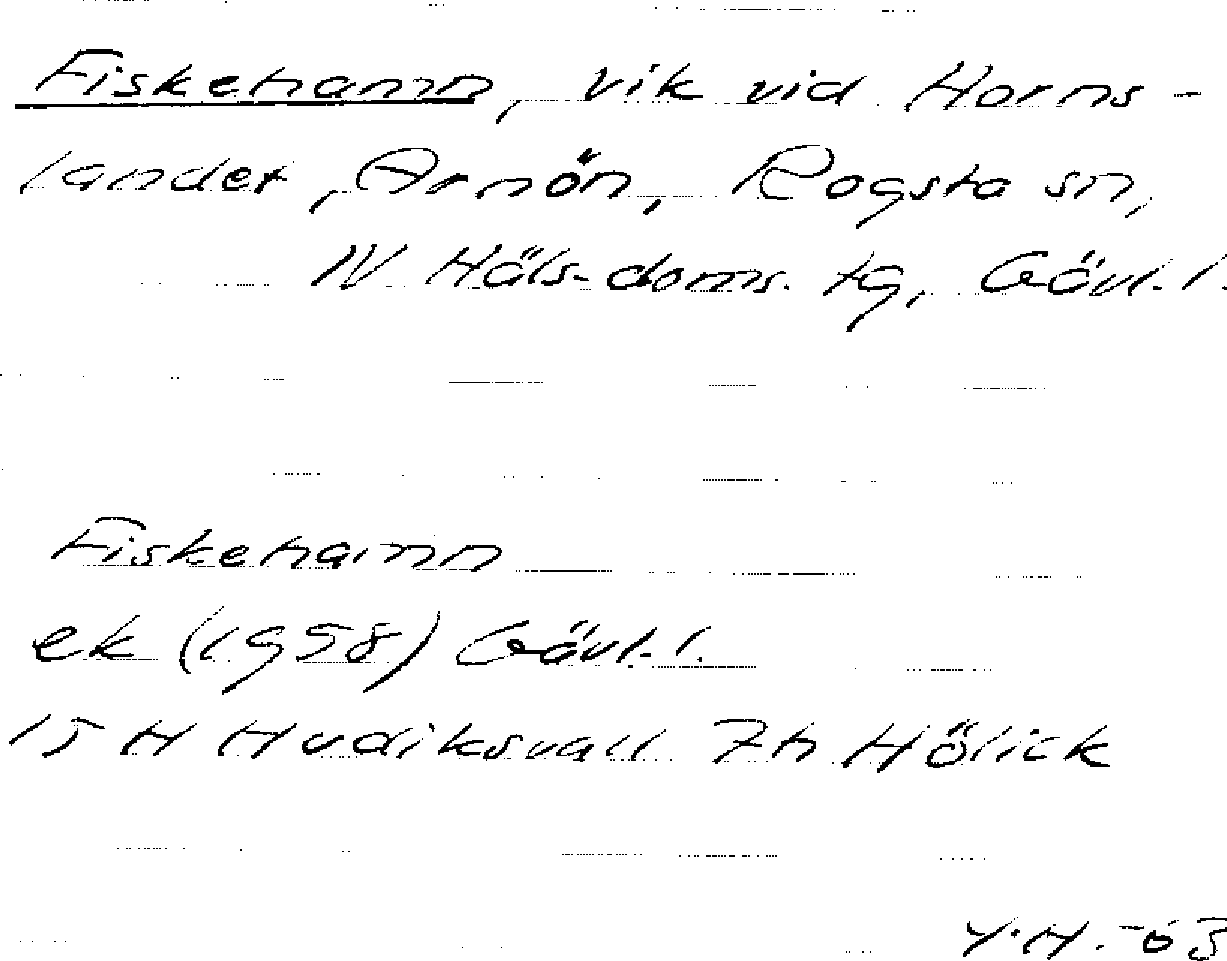 Fiskehamn, vik vid Horns-
landet, Arnön, Rogsta sn,
N. Häls. doms. tg, Gävl. l.
Fiskehamn
ek (1958) Gävl. l.
15 H Hudiksvall 7h Hölick
Y.H. -63